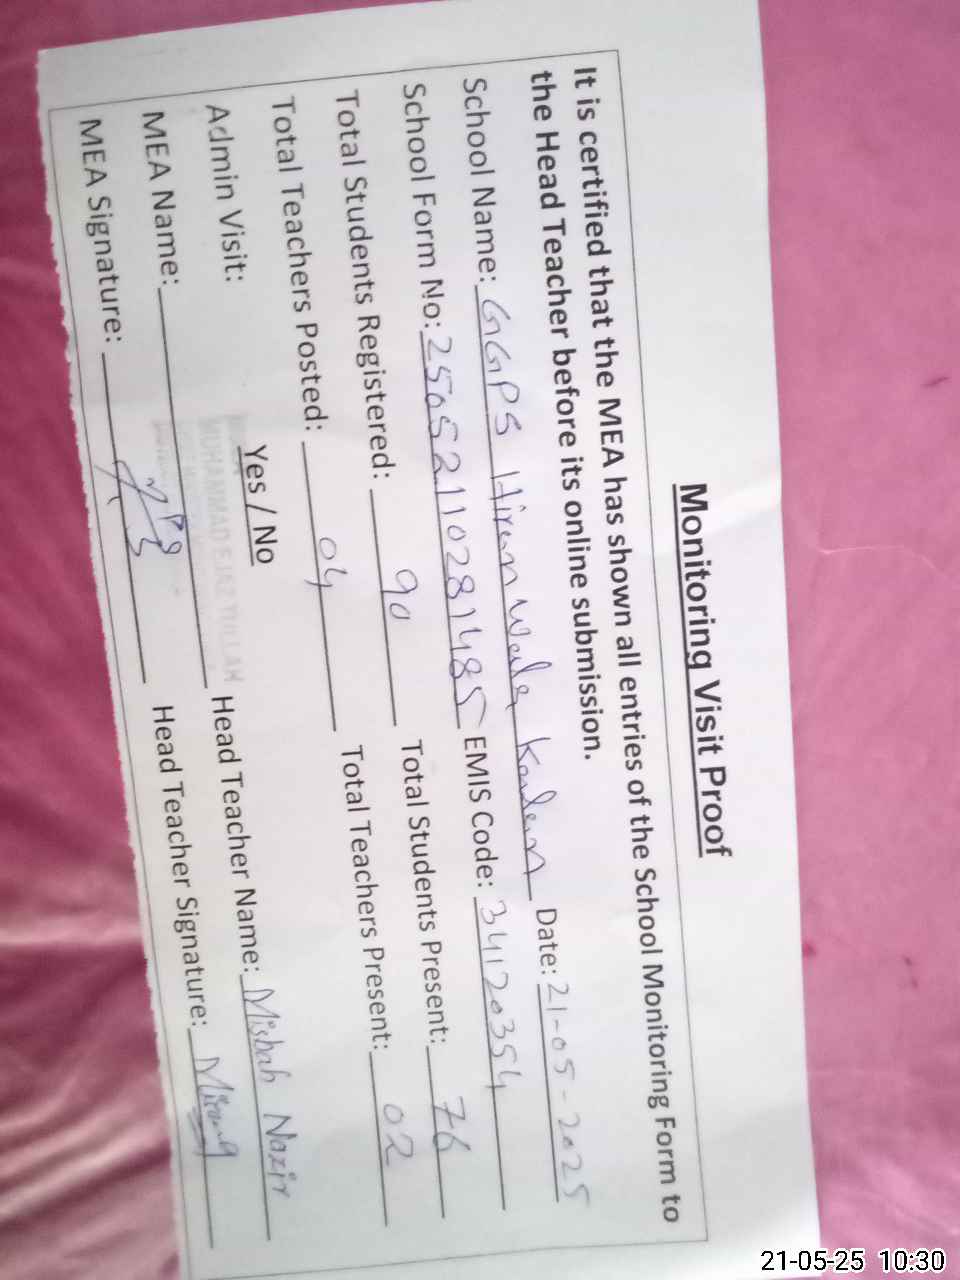 Monitoring Visit Proof
It is certified that the MEA has shown all entries of the School Monitoring Form to
the Head Teacher before its online submission.
School Name: GGPS Hiran wala Date: 21-05-2025
School Form No: 25052110281485 EMIS Code: 34120354
Total Students Registered: 90 Total Students Present: 76
Total Teachers Posted: 04 Total Teachers Present: 02
Admin Visit: Yes / No
MUHAMMAD EJAZ ULLAH
MEA Name: Head Teacher Name: Misbah Nazir
MEA Signature: Head Teacher Signature:
21-05-25 10:30